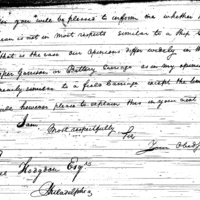 or "gun" will be pleased to inform me whether a
is not in most respects similar to a Ship
that is the case our opinions differ widely in th
Garrison or Battery Carriage as in my opinion
similar to a field Carriage except the
however please to explain this in your next
I am
Most respectfully
Sir
Your Obed
Hodgdon Esqr
Philadelphia